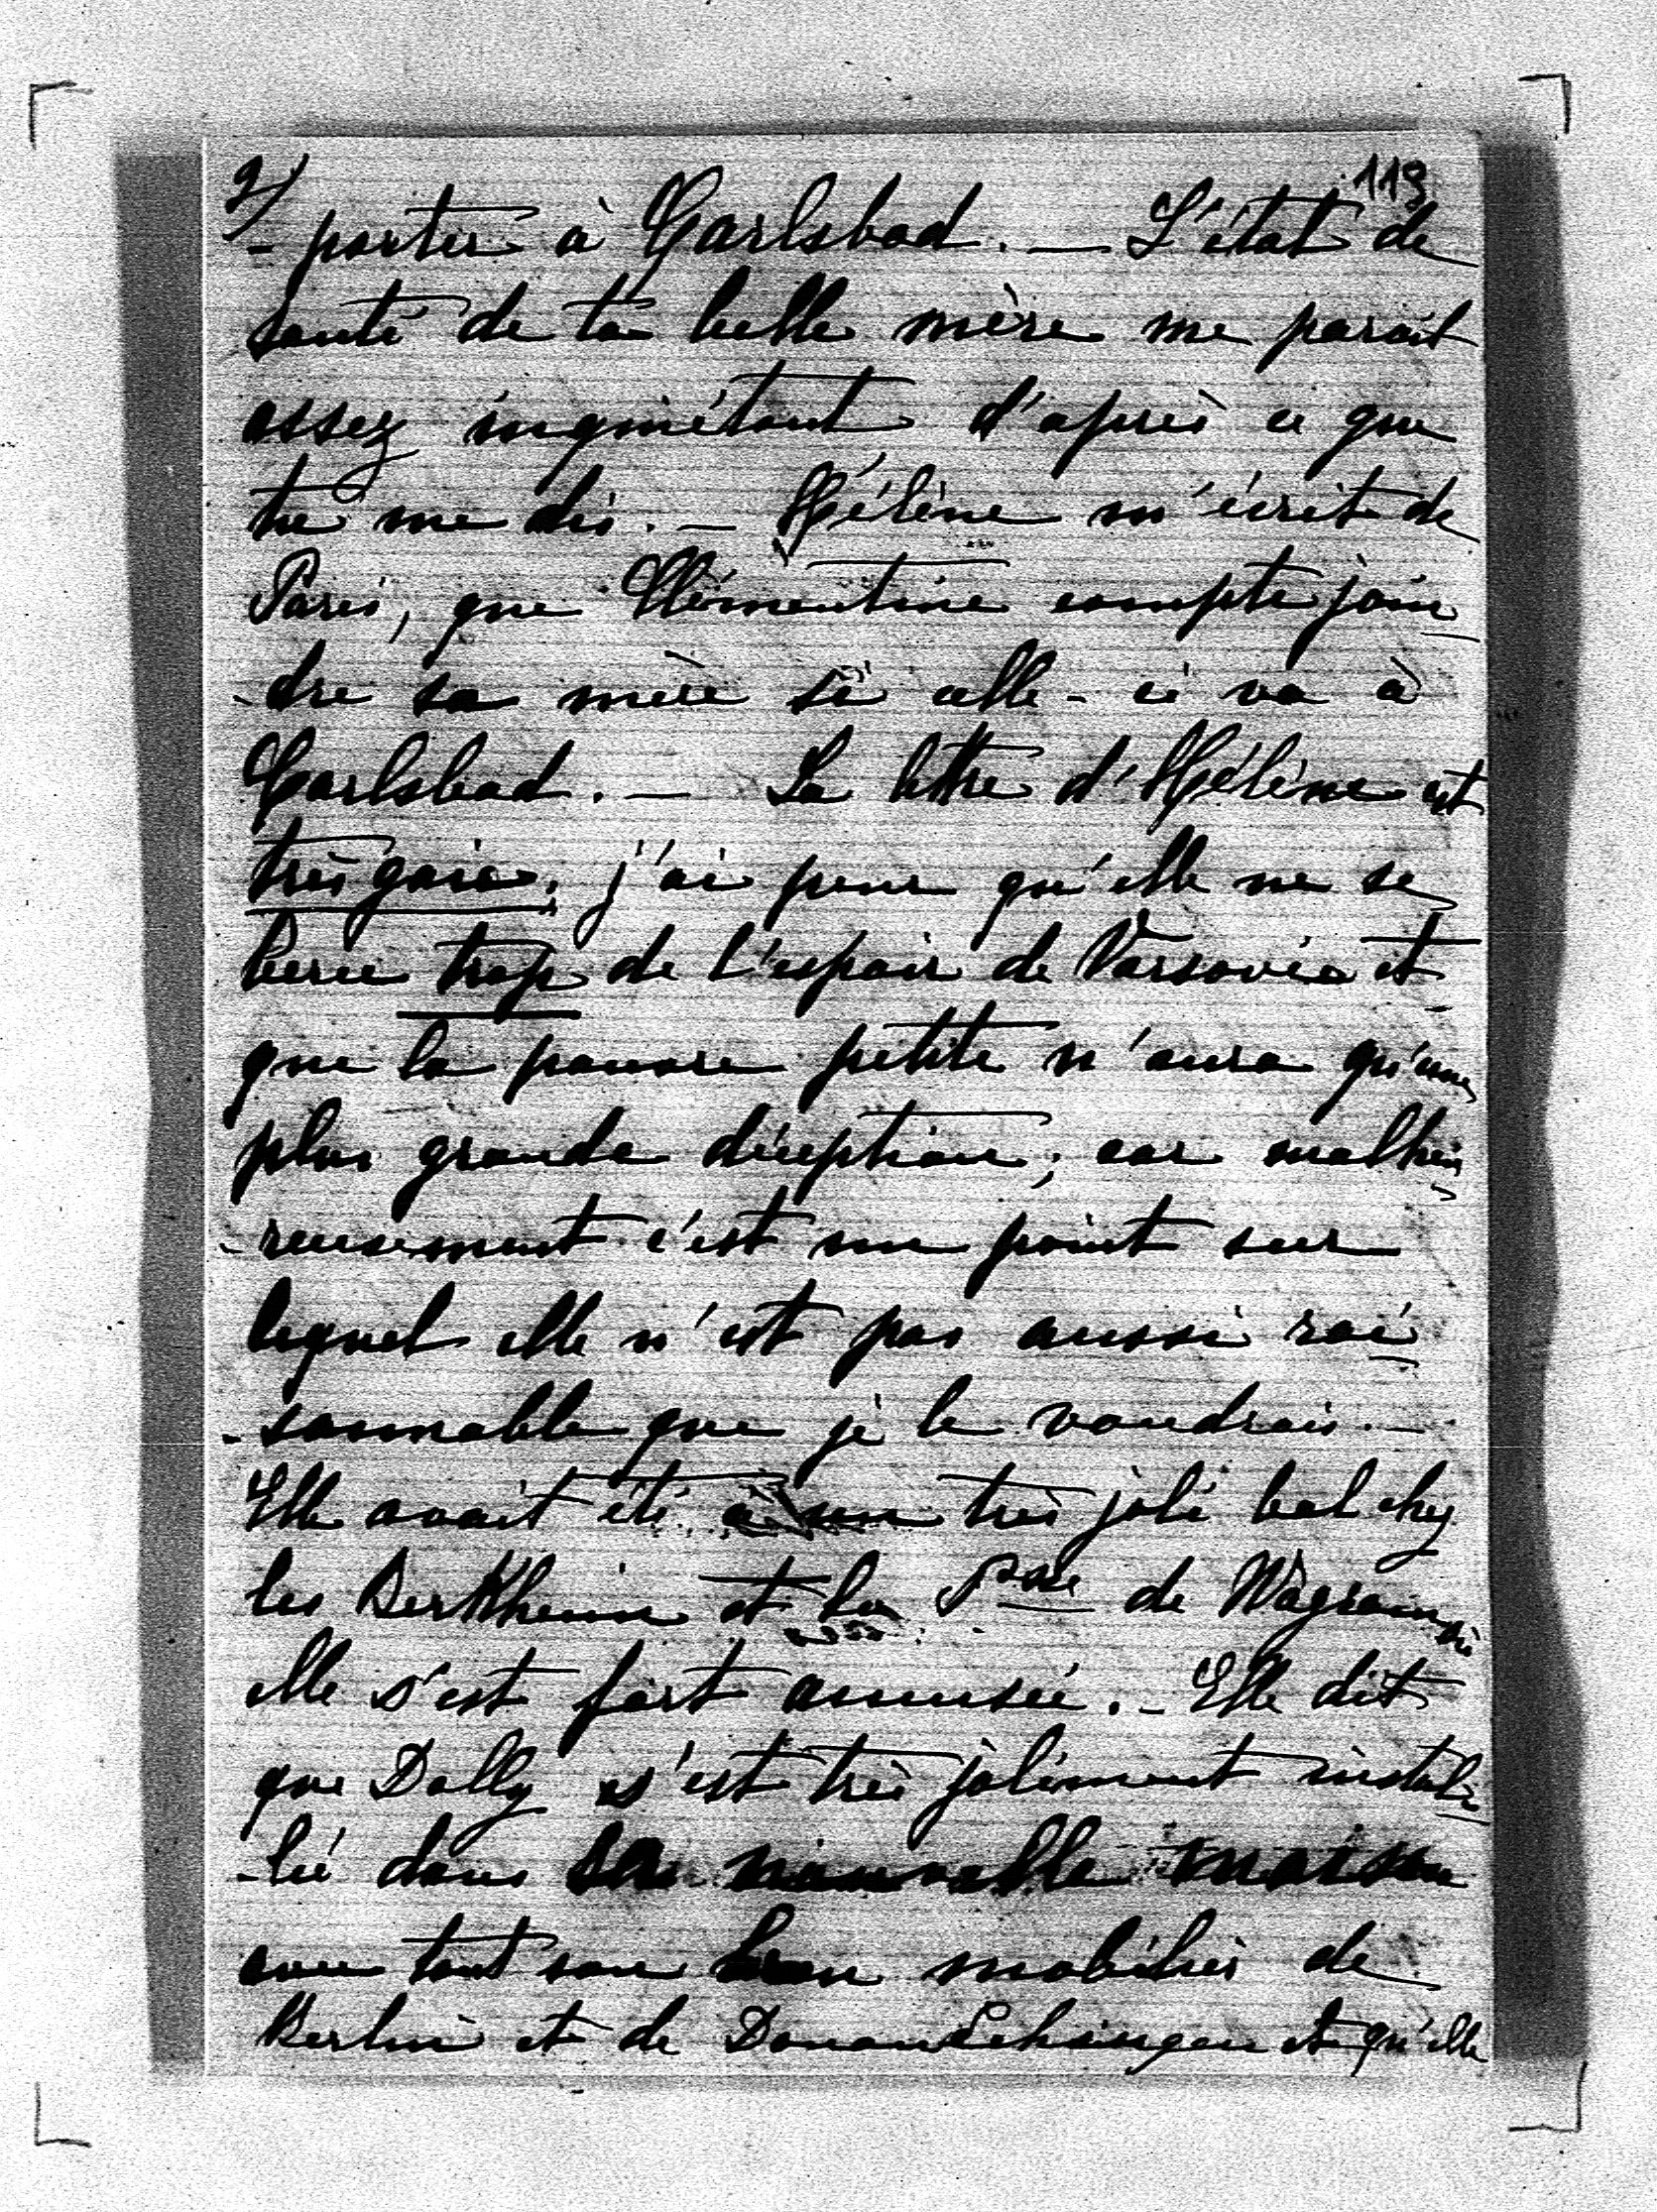 2/ 113
- porter à Carlsbad. — L'état de
santé de ta belle mère me parait
assez inquiétant d'après ce que
tu me dis. — Hélène m'écrit de
Paris, que Clémentine compte join
- dre sa mère si celle-ci va à
Carlsbad. — La lettre d'Hélène est
très gaie, j'ai peur qu'elle ne se
berce trop de l'espoir de Varsovie et
que la pauvre petite n'aura qu'une
plus grande déception; car malheu
- reusement c'est un point sur
lequel elle n'est pas aussi rai
- sonnable que je le voudrais. —
Elle avait été à un très joli bal chez
les Berkheim et la Psse de Wagram
elle s'est fort amusée. - Elle dit
que Dolly s'est très joliment instal
- lée dans sa nouvelle maison
avec tout son bon mobilier de
Berlin et de Donaueschingen et qu'elle